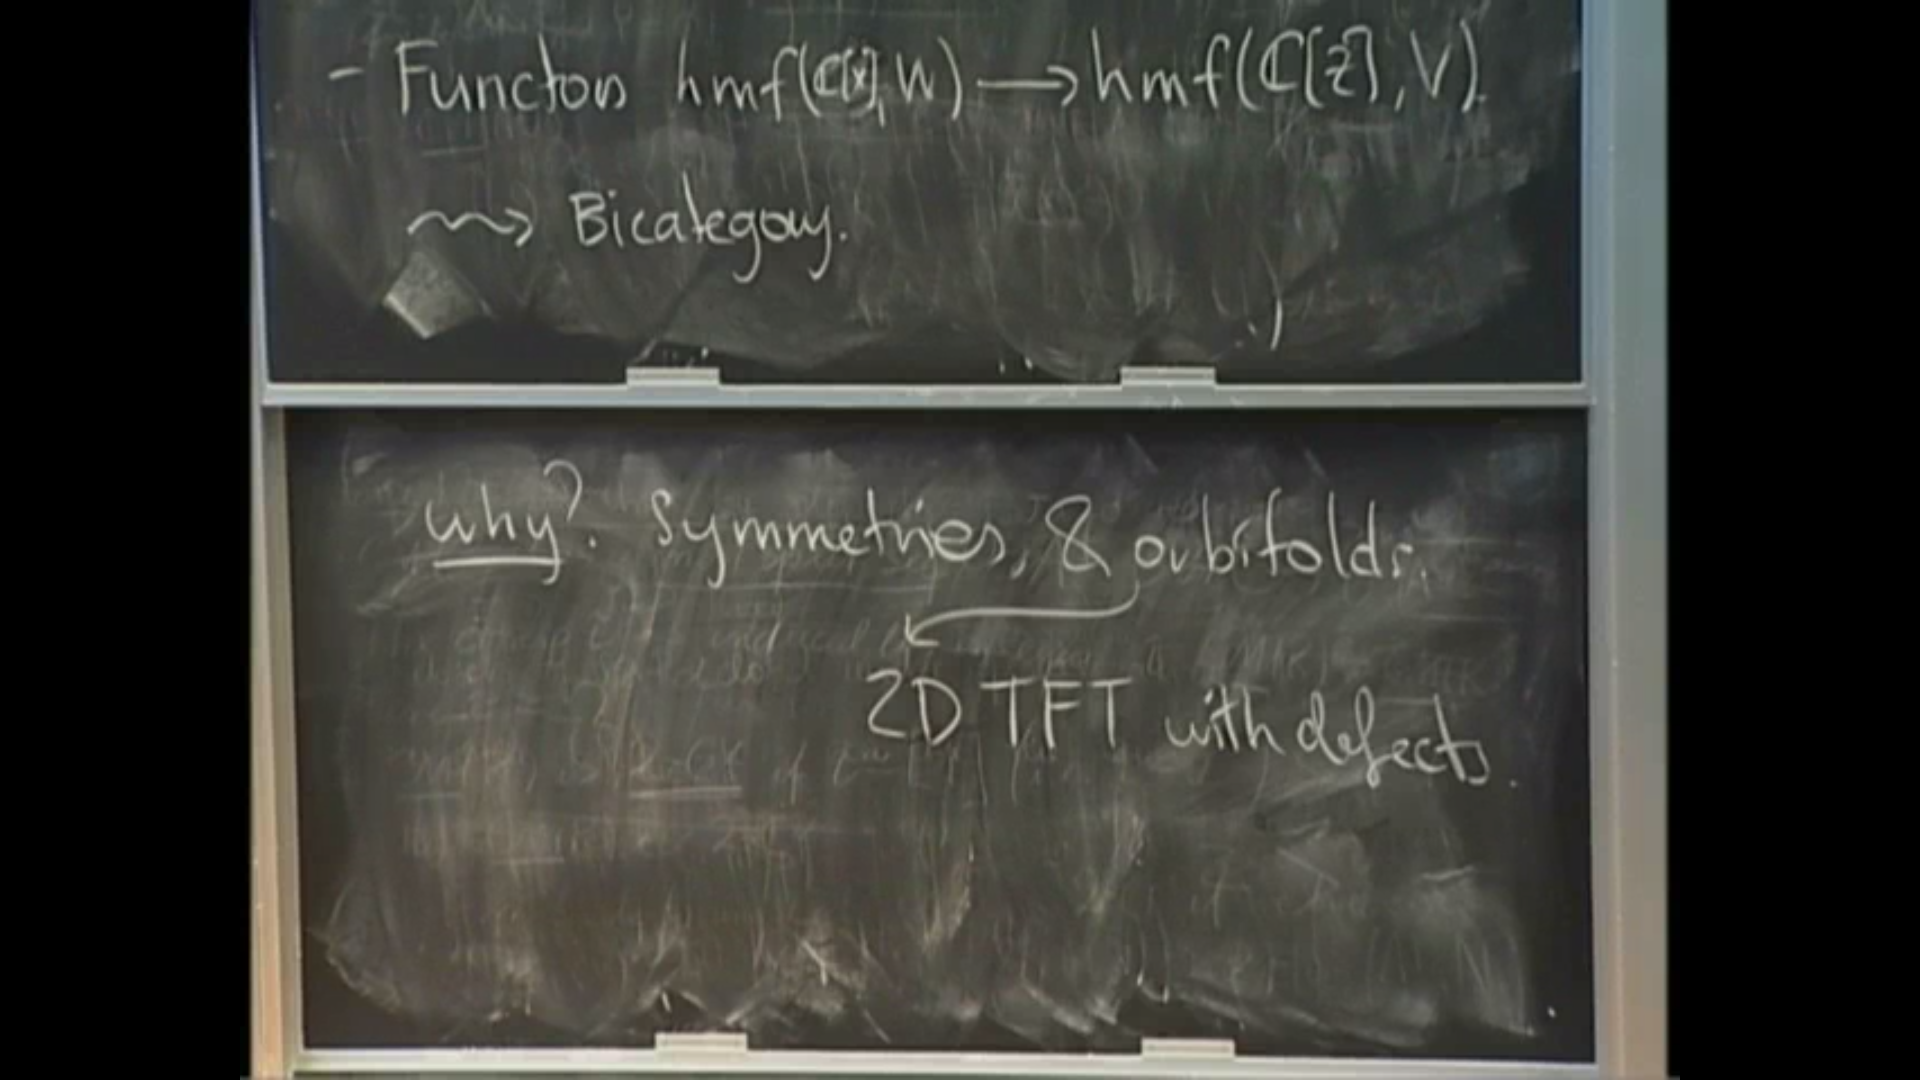 - Functors hmf(ℂ[x], W) ⟶ hmf(ℂ[z], V).
⇝ Bicategory.
why? Symmetries, & orbifolds.
2D TFT with defects.